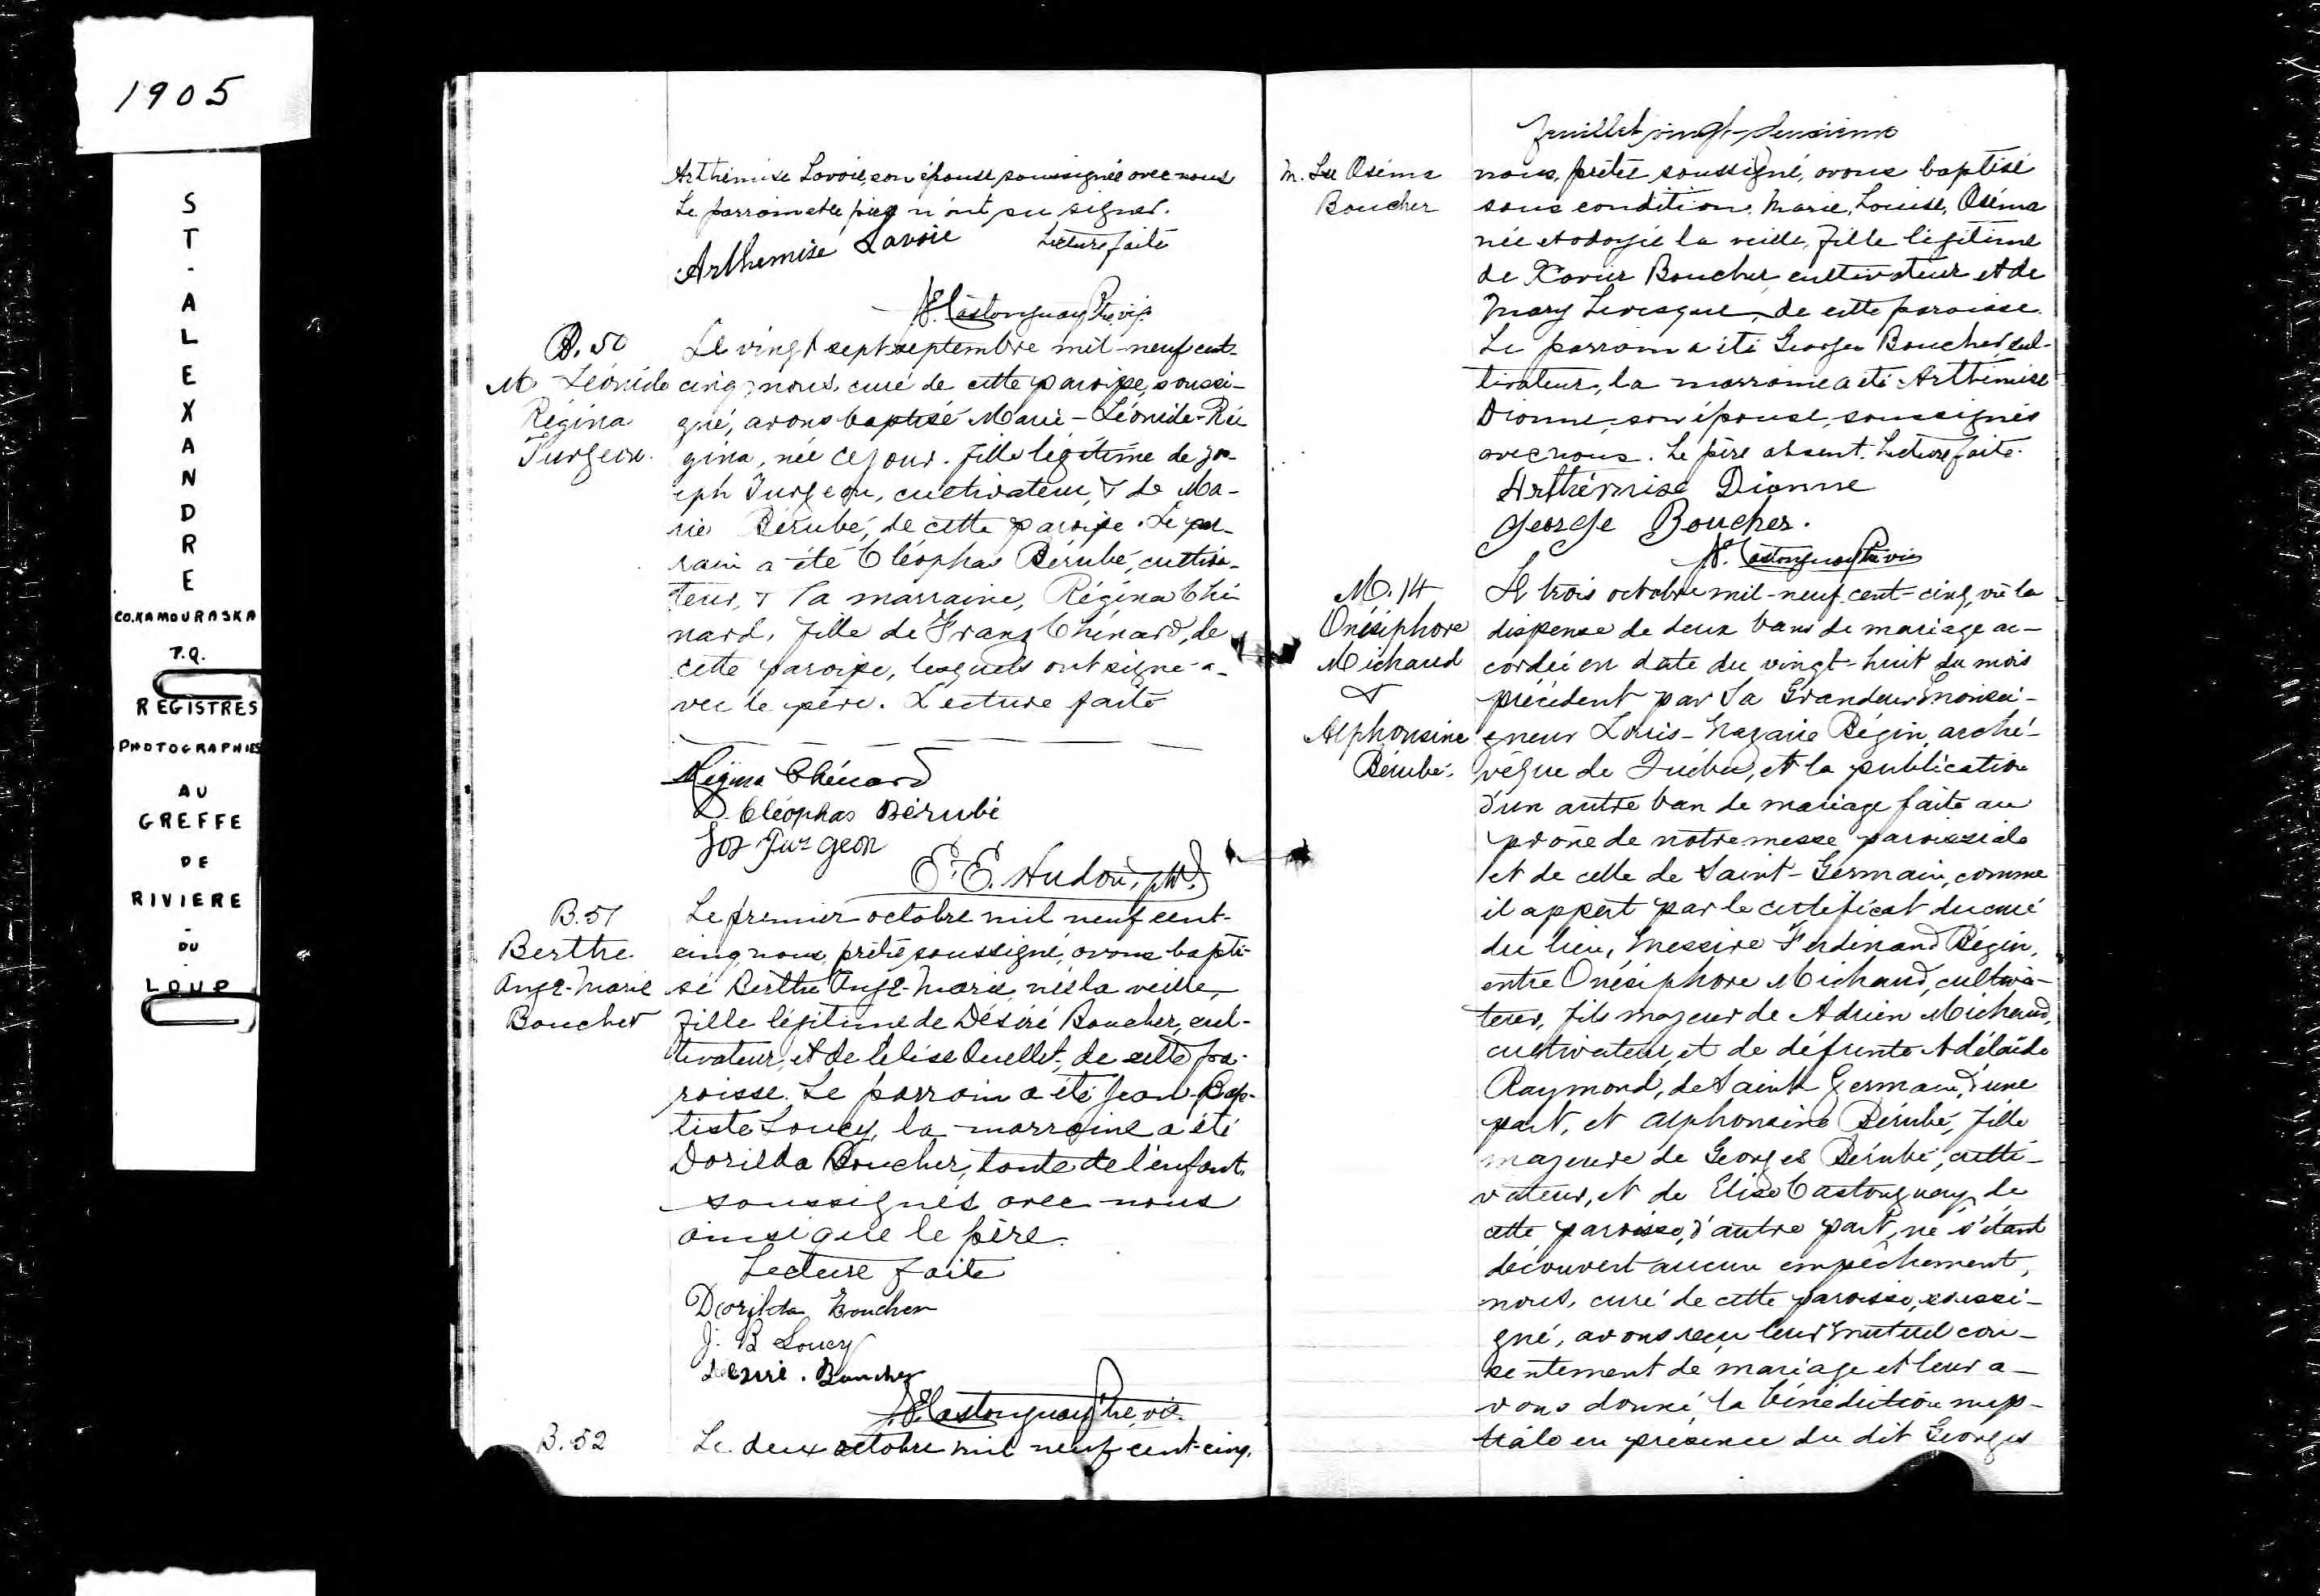 1905
ST-ALEXANDRE
CO. KAMOURASKA
P.Q.
REGISTRES
PHOTOGRAPHIES
AU
GREFFE
DE
RIVIERE
-
DU
-
LOUP
Arthémise Lavoie, son épouse soussignée avec nous
Le parrain et le père n'ont su signer.
Lecture faite
Arthemise Lavoie
Castonguay Ptre vic.
B. 50
M Léonide
Régina
Turgeon.
Le vingt sept septembre mil-neuf cent-
cinq, nous, curé de cette paroisse, soussi-
gné, avons baptisé Marie-Léonide-Ré
gina, née ce jour. fille légitime de Jos-
eph Turgeon, cultivateur, & de Ma-
rie Bérubé, de cette paroisse. Le par-
rain a été Cléophas Bérubé, cultiva-
teur, & la marraine, Régina Ché
nard, fille de Franz Chénard, de
cette paroisse, lesquels ont signé a-
vec le père. Lecture faite
Régina Chénard
Cléophas Bérubé
Jos Turgeon
E. E. Hudon, ptr.
B. 51
Berthe
Ange-Marie
Boucher
Le premier octobre mil neuf cent-
cinq nous, prêtre soussigné, avons bapti-
sé Berthe Ange-Marie, née la veille,
fille légitime de Désiré Boucher, cul-
tivateur, et de Célise Ouellet, de cette pa-
roisse. Le parrain a été Jean-Bap-
tiste Soucy, la marraine a été
Dorilda Boucher, tante de l'enfant
soussignés avec nous
ainsi que le père.
Lecture faite
Dorilda Boucher
J. B Soucy
Désiré. Boucher
Castonguay Ptre, vic.
B. 52
Le deux octobre mil neuf cent-cinq,
feuillet vingt-deuxième
M. Lse Oséma
Boucher
nous, prêtre soussigné, avons baptisé
sous condition, Marie, Louise, Oséma
née et ondoyée la veille, fille légitime
de Xavier Boucher, cultivateur et de
Mary Levesque, de cette paroisse.
Le parrain a été Georges Boucher, cul-
tivateur, la marraine a été Arthémise
Dionne, son épouse, soussignés
avec nous. Le père absent. Lecture faite.
Arthémise Dionne
George Boucher.
Castonguay Ptre vic
M. 14
Onésiphore
Michaud
&
Alphonsine
Bérubé.
Le trois octobre mil-neuf-cent-cinq, vu la
dispense de deux bans de mariage ac-
cordée en date du vingt-huit du mois
précédent par Sa Grandeur Monsei-
gneur Louis-Nazaire Bégin, arche-
vêque de Québec, et la publication
d'un autre ban de mariage faite au
prône de notre messe paroissiale
et de celle de Saint-Germain, comme
il appert par le certificat du curé
du lieu, Messire Ferdinand Bégin,
entre Onésiphore Michaud, cultiva-
teur, fils majeur de Adrien Michaud,
cultivateur, et de défunte Adélaïde
Raymond, de Saint Germain, d'une
part, et Alphonsine Bérubé, fille
majeure de Georges Bérubé, culti-
vateur, et de Elise Castonguay, de
cette paroisse, d'autre part, ne s'étant
découvert aucun empêchement,
nous, curé de cette paroisse, soussi-
gné, avons reçu leur mutuel con-
sentement de mariage et leur a-
vons donné la bénédiction nup-
tiale en présence du dit Georges